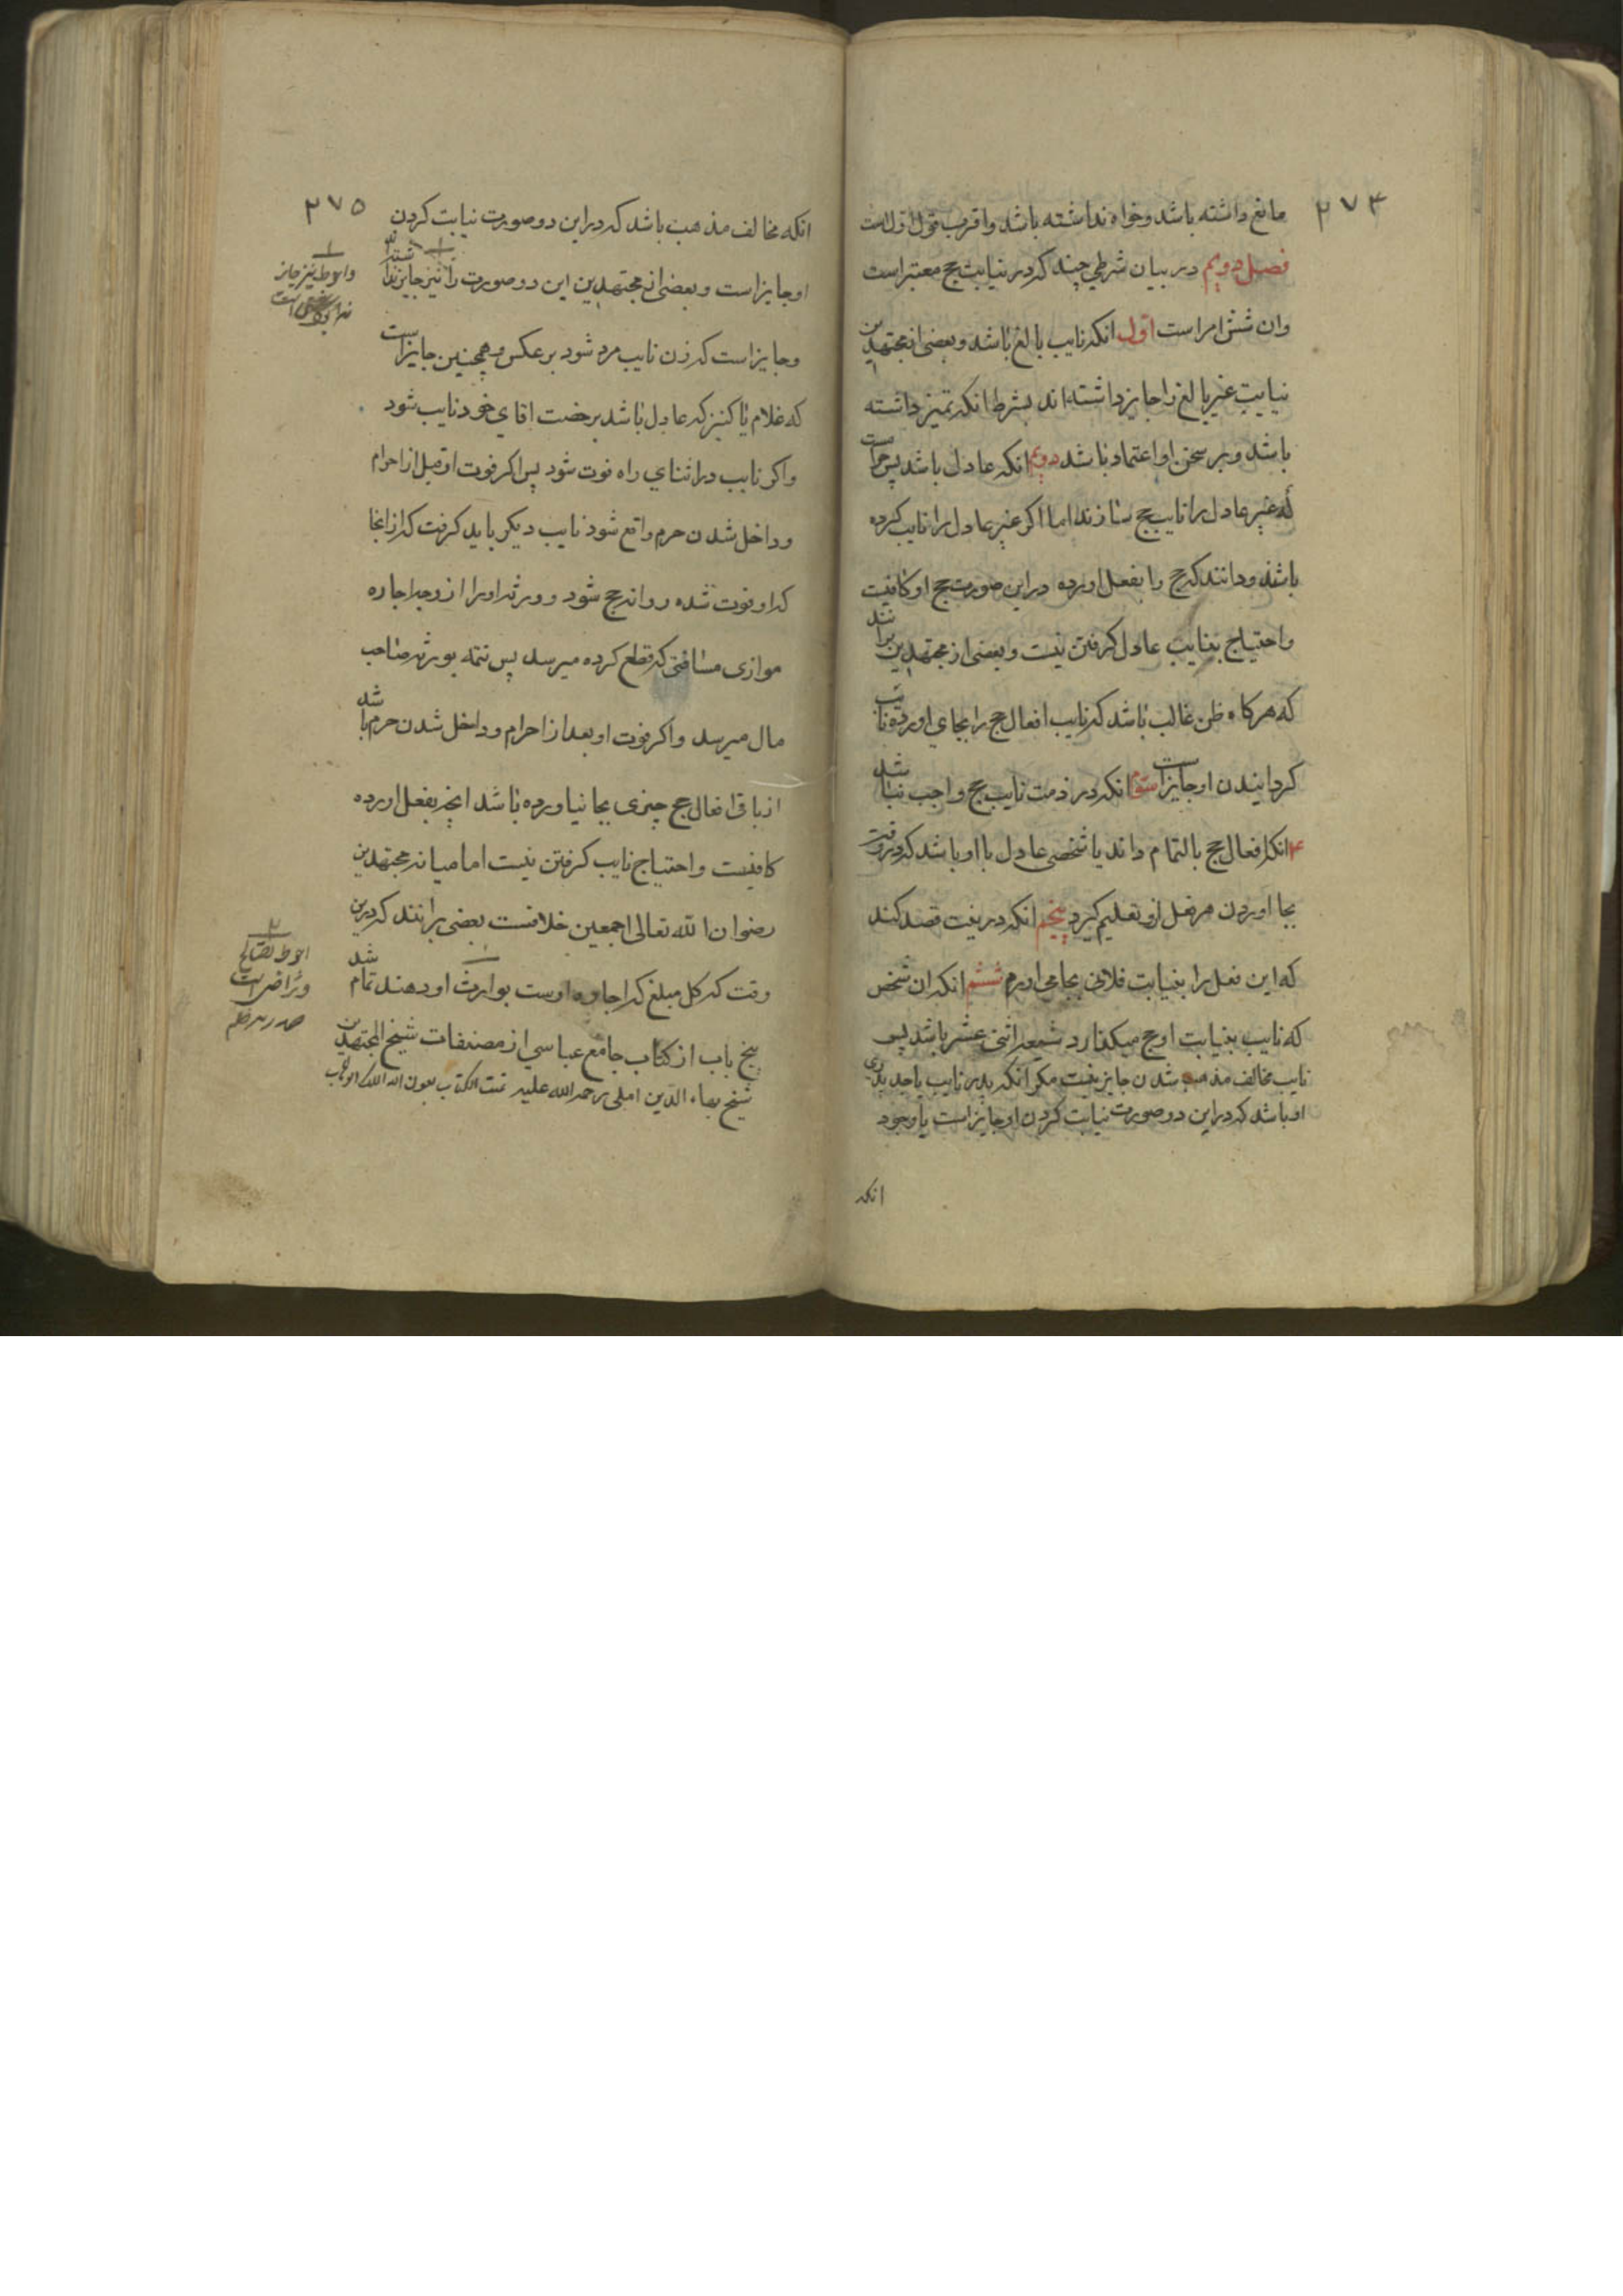 ۲۷۴
مانع داشته باشد و خواه نداشته باشد و اقرب قول اول است
فصل دویم در بیان شرطی چند که در نیابت حج معتبر است
وان شش امر است اول انکه نایب بالغ باشد و بعضی از مجتهدین
نیابت غیر بالغ را جایز داشته اند بشرط انکه تمیز داشته
باشد و بر سخن او اعتماد باشد دویم انکه عادل باشد پس
که غیر عادل را نایب حج سازند اما اکر غیر عادل را نایب کرده
باشند و دانند که حج را بفعل اورده در این صورت حج او کافیست
و احتیاج بنایب عادل کرفتن نیست و بعضی از مجتهدین برانند
که هرکاه ظن غالب باشد که نایب افعال حج را بجای اورده نایب
کردانیدن او جایز است سیوم انکه در ذمت نایب حج واجب نباشد
۴ انکه افعال حج بالتمام داند یا شخصی عادل با او باشد که در وقت
بجا اوردن هر فعل ازو تعلیم کیرد پنجم انکه در نیت قصد کند
که این فعل را بنیابت فلانی بجا می اورم ششم انکه ان شخص
که نایب بنیابت او حج میکذارد شیعه اثنی عشر باشد پس
نایب مخالف مذهب شدن جایز نیست مکر انکه پدر نایب یا جد پدری
او باشد که در این دو صورت نیابت کردن او جایز است با وجود
انکه
۲۷۵
انکه مخالف مذهب باشد که در این دو صورت نیابت کردن
او جایز است و بعضی از مجتهدین این دو صورت را نیز جایز نداشته
و جایز است که زن نایب مرد شود بر عکس و همچنین جایز است
که غلام یا کنیز که عادل باشد برخصت اقای خود نایب شود
و اکر نایب در اثنای راه فوت شود پس اکر فوت او قبل از احرام
و داخل شدن حرم واقع شود نایب دیکر باید کرفت که از انجا
که او فوت شده روانه حج شود و ورثه او را از وجه اجاره
موازی مسافتی که قطع کرده میرسد پس تتمه بورثه صاحب
مال میرسد و اکر فوت او بعد از احرام و داخل شدن حرم باشد
از باقی افعال حج چیزی بجا نیاورده باشد انچه بفعل اورده
کافیست و احتیاج نایب کرفتن نیست اما میانه مجتهدین
رضوان الله تعالی اجمعین خلافست بعضی برانند که درین
وقت که کل مبلغ که اجاره اوست بوارث او دهند تمام شد
پنج باب از کتاب جامع عباسی از مصنفات شیخ المجتهدین
شیخ بهاء الدین املی رحمه الله علیه تمت الکتاب بعون الله الملک الوهاب
۱
و احوط نیز جایز
۲
احوط تصالح
و تراضی است
صدر